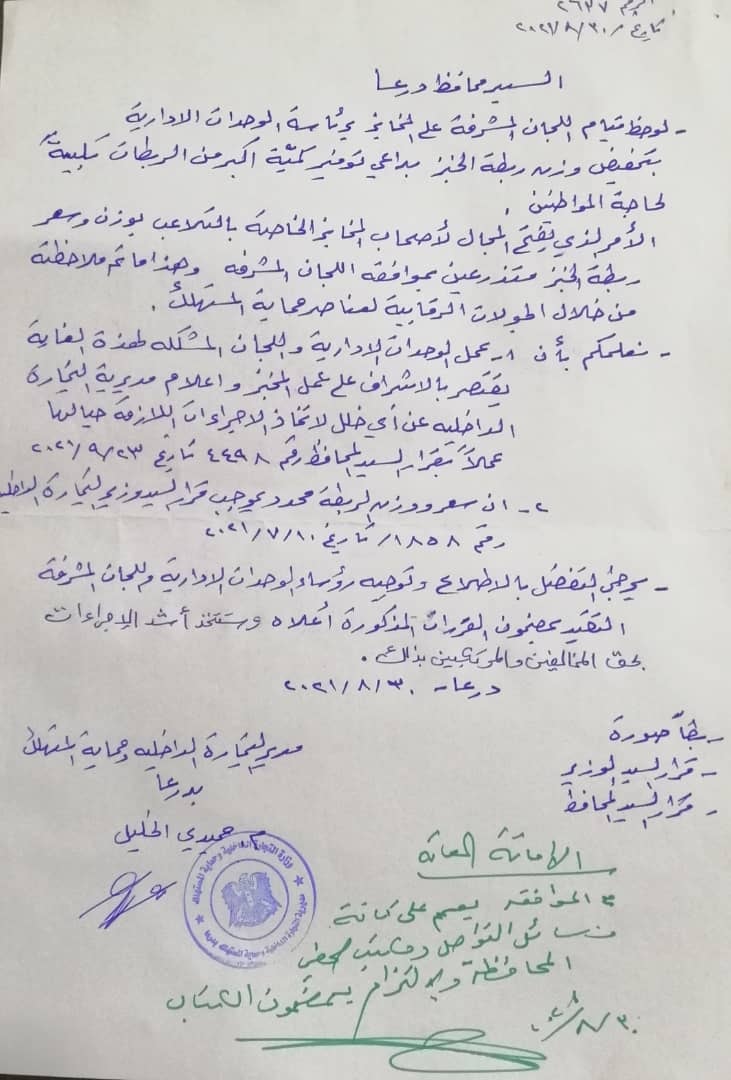 الرقم ٢٦٣٧
تاريخ ٢٠٢١/٨/٣٠
السيد محافظ درعا
- لوحظ قيام اللجان المشرفة على المخابز برئاسة الوحدات الادارية
بتخفيض وزن ربطة الخبز بداعي توفير كميّة اكبر من الربطات تلبيةً
لحاجة المواطنين .
الأمر الذي يفتح المجال لأصحاب المخابز الخاصة بالتلاعب بوزن وسعر
ربطة الخبز متذرعين بموافقة اللجان المشرفه وهذا ماتم ملاحظته
من خلال الجولات الرقابية لعناصر حماية المستهلك .
- نعلمكم بأن ١- عمل الوحدات الادارية واللجان المشكله لهذة الغاية
يقتصر بالاشراف على عمل المخبز واعلام مديرية التجارة
الداخليه عن أي خلل لاتخاذ الاجراءات اللازمة حيالها
عملاً بقرار السيد المحافظ رقم ٤٤٩٨ تاريخ ٢٠٢١/٩/٢٣
٢- ان سعر ووزن الربطة محدد بموجب قرار السيد وزير التجارة الداخلية
رقم /١٨٥٨/ تاريخ ٢٠٢١/٧/١٠
- يرجى التفضل بالاطلاع وتوجيه رؤساء الوحدات الادارية واللجان المشرفة
التقيد بمضمون القررات المذكورة أعلاه وستتخذ أشد الاجراءات
بحق المخالفين والمرتكبين بذلك .
درعا - ٢٠٢١/٨/٣٠
ربطاً صورة
- قرار السيد الوزير
- قرار السيد المحافظ
مدير التجارة الداخليه وحماية المستهلك
بدرعا
م. حميدي الخليل
وزارة التجارة الداخلية وحماية المستهلك
مديرية التجارة الداخلية وحماية المستهلك بدرعا
الامانة العامة
الموافقه يعمم على كافة
وسائل التواصل ومكتب صحفي
المحافظة والالتزام بمضمون الكتاب
٨/٣٠